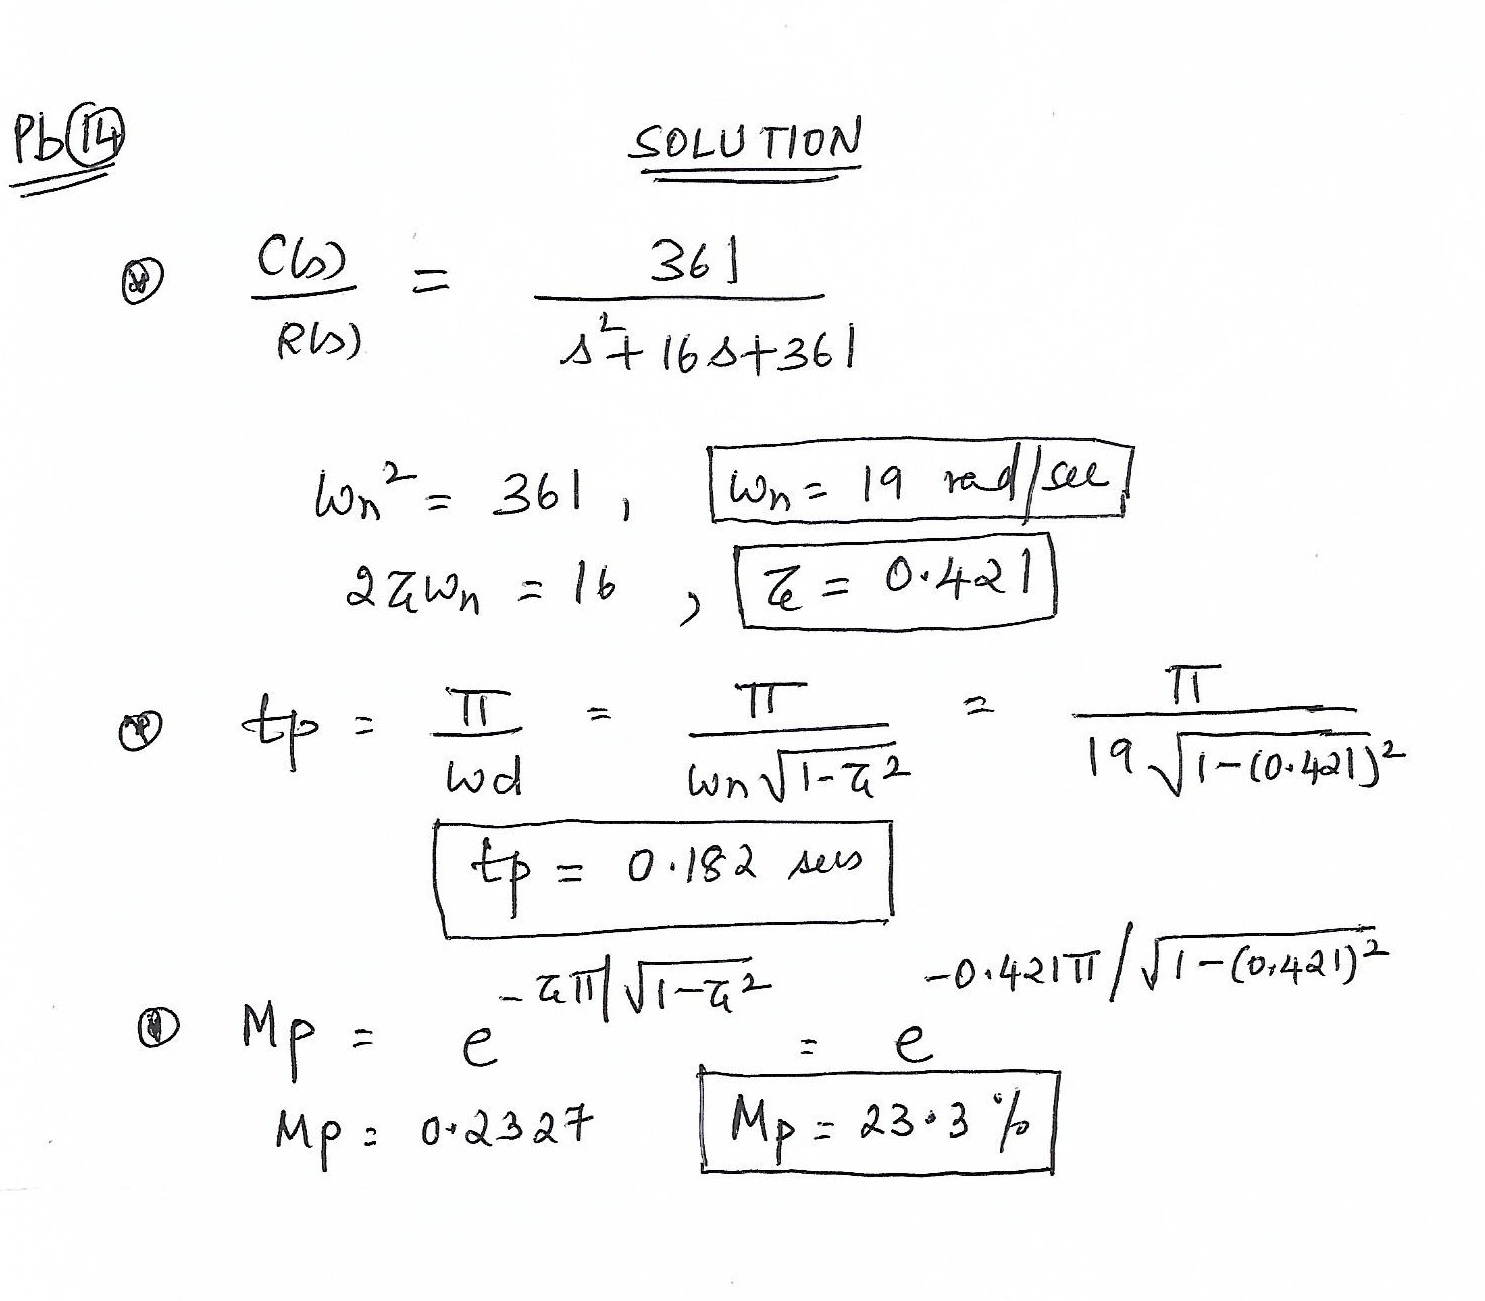 Pb(14) SOLUTION
C(s)/R(s) = 361/(s²+16s+361)
ωn² = 361, ωn = 19 rad/sec
2ζωn = 16, ζ = 0.421
tp = π/ωd = π/(ωn√(1-ζ²)) = π/(19√(1-(0.421)²))
tp = 0.182 secs
Mp = e^(-ζπ/√(1-ζ²)) = e^(-0.421π/√(1-(0.421)²))
Mp = 0.2327 Mp = 23.3 %